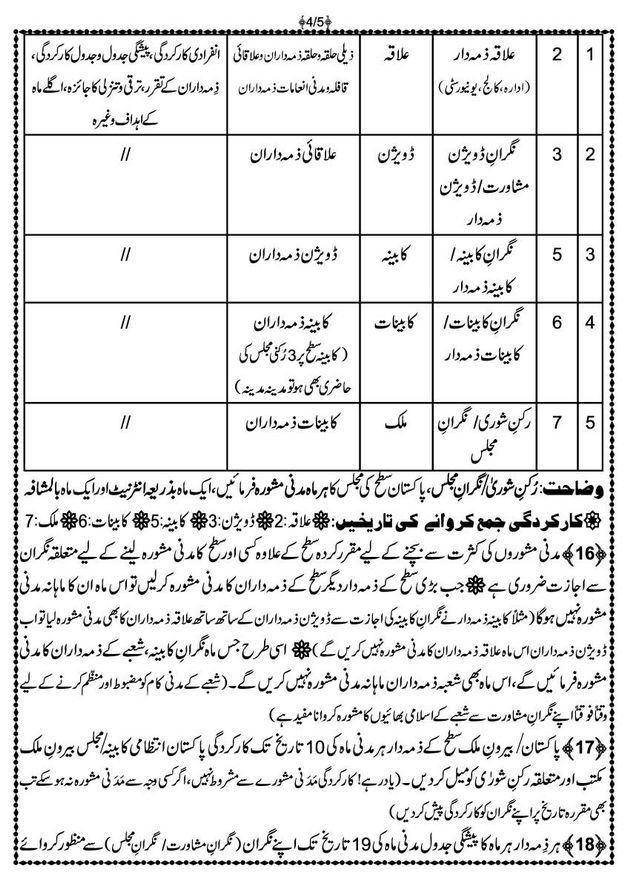 ﴿4/5﴾
1 2 علاقہ ذمہ دار علاقہ ذیلی حلقہ و حلقہ ذمہ داران و علاقائی انفرادی کارکردگی، پیشگی جدول و جدول کارکردگی،
(ادارہ، کالج، یونیورسٹی) قافلہ و مدنی انعامات ذمہ داران ذِمہ داران کے تقرر، ترقی و تنزلی کا جائزہ، اگلے ماہ
کے اہداف وغیرہ
2 3 نگرانِ ڈویژن ڈویژن علاقائی ذمہ داران //
مشاورت/ ڈویژن
ذمہ دار
3 5 نگرانِ کابینہ/ کابینہ ڈویژن ذمہ داران //
کابینہ ذمہ دار
4 6 نگرانِ کابینات/ کابینات کابینہ ذمہ داران //
کابینات ذمہ دار (کابینہ سطح پر 3 رُکنی مجلس کی
حاضری بھی ہو تو مدینہ مدینہ)
5 7 رکنِ شوریٰ/ نگرانِ ملک کابینات ذمہ داران //
مجلس
وضاحت: رُکنِ شوریٰ/نگرانِ مجلس، پاکستان سطح کی مجلس کا ہر ماہ مدنی مشورہ فرمائیں، ایک ماہ بذریعہ انٹرنیٹ اور ایک ماہ بالمشافہ
❁کارکردگی جمع کروانے کی تاریخیں:❁علاقہ:2❁ڈویژن:3❁کابینہ:5❁کابینات:6❁ملک:7
﴿16﴾ مدنی مشوروں کی کثرت سے بچنے کے لیے مقرر کردہ سطح کے علاوہ کسی اور سطح کا مدنی مشورہ لینے کے لیے متعلقہ نگران
سے اجازت ضروری ہے ❁ جب بڑی سطح کے ذمہ دار دیگر سطح کے ذمہ داران کا مدنی مشورہ کر لیں تو اس ماہ ان کا ماہانہ مدنی
مشورہ نہیں ہوگا (مثلاً کابینہ ذمہ دار نے نگرانِ کابینہ کی اجازت سے ڈویژن ذمہ داران کے ساتھ ساتھ علاقہ ذمہ داران کا بھی مدنی مشورہ لیا تو اب
ڈویژن ذمہ داران اس ماہ علاقہ ذمہ داران کا مدنی مشورہ نہیں کریں گے)❁ اسی طرح جس ماہ نگرانِ کابینہ، شعبے کے ذمہ داران کا مدنی
مشورہ فرمائیں گے، اس ماہ بھی شعبہ ذمہ داران ماہانہ مدنی مشورہ نہیں کریں گے۔ (شعبے کے مدنی کام کو مضبوط اور منظّم کرنے کے لیے
وقتاً فوقتاً اپنے نگرانِ مشاورت سے شعبے کے اسلامی بھائیوں کا مشورہ کروانا مفید ہے)
﴿17﴾ پاکستان/ بیرونِ ملک سطح کے ذمہ دار ہر مدنی ماہ کی 10 تاریخ تک کارکردگی پاکستان انتظامی کابینہ/ مجلس بیرونِ ملک
مکتب اور متعلقہ رکنِ شوریٰ کو میل کر دیں۔ (یاد رہے! کارکردگی مَدَنی مشورے سے مشروط نہیں، اگر کسی وجہ سے مَدَنی مشورہ نہ ہو سکے تب
بھی مقررہ تاریخ پر اپنے نگران کو کارکردگی پیش کر دیں)
﴿18﴾ ہر ذِمہ دار ہر ماہ کا پیشگی جدول مدنی ماہ کی 19 تاریخ تک اپنے نگران (نگرانِ مشاورت/ نگرانِ مجلس) سے منظور کروائے